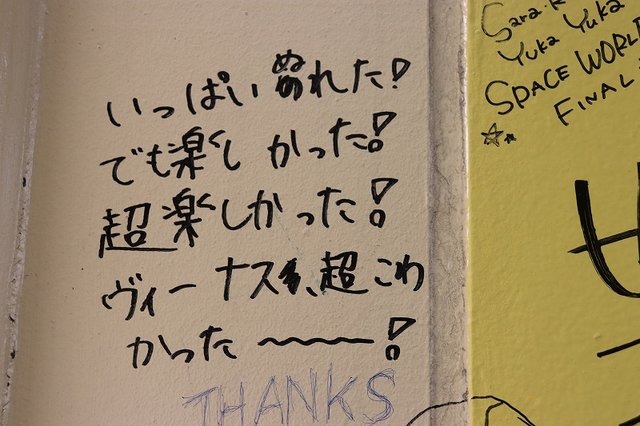 いっぱいぬれた!
でも楽しかった!
超楽しかった!
ヴィーナス、超こわ
かった〜!
THANKS
Sara
Yuka Yuka
SPACE WORLD
FINAL